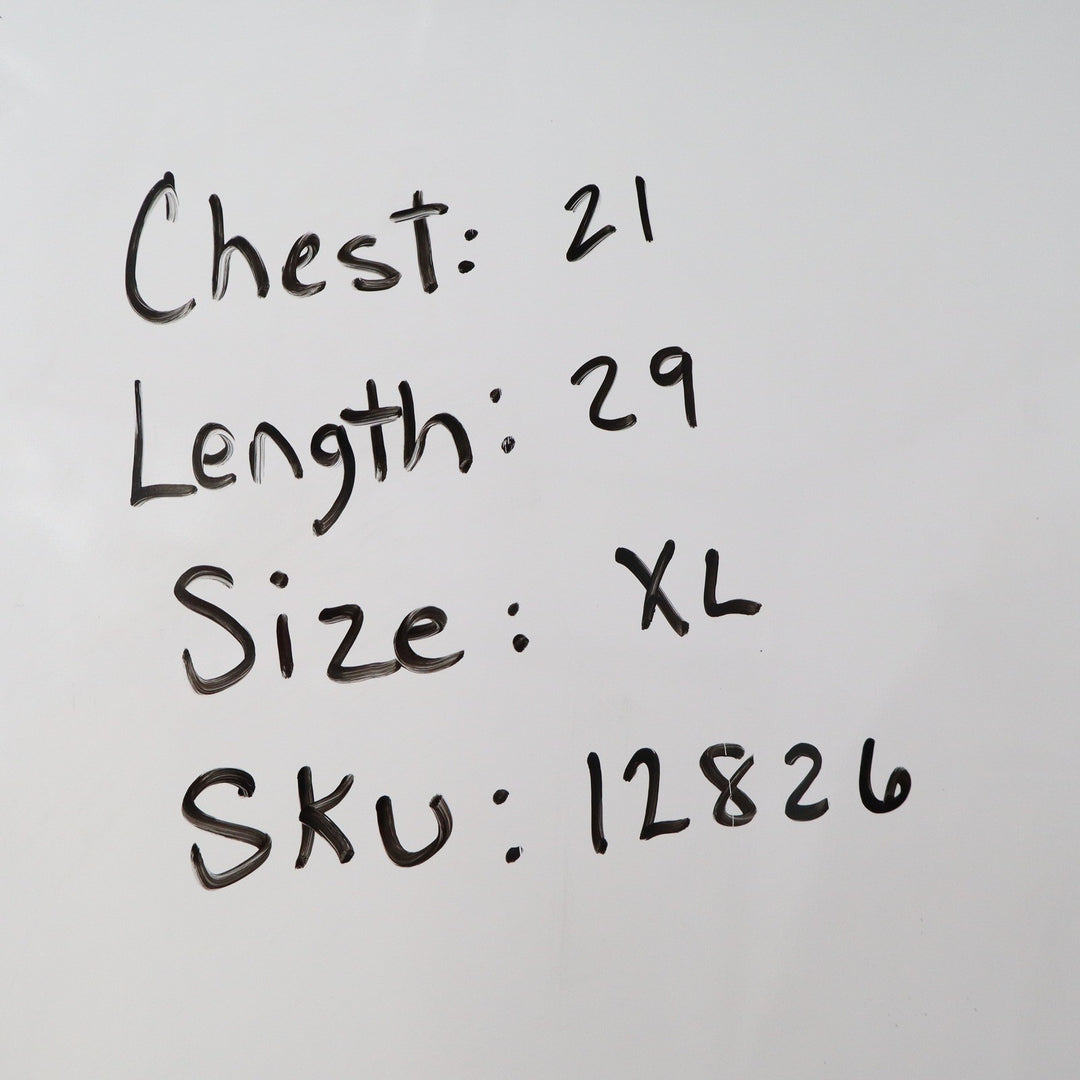 Chest: 21
Length: 29
Size: XL
SKU: 12826